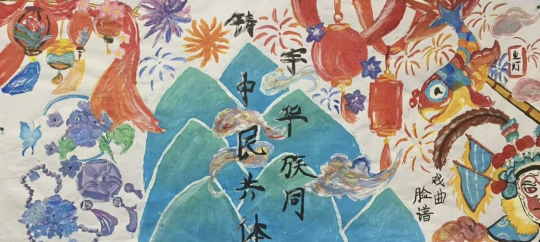 铸牢
中华
民族
共同
体
鱼灯
戏曲
脸谱